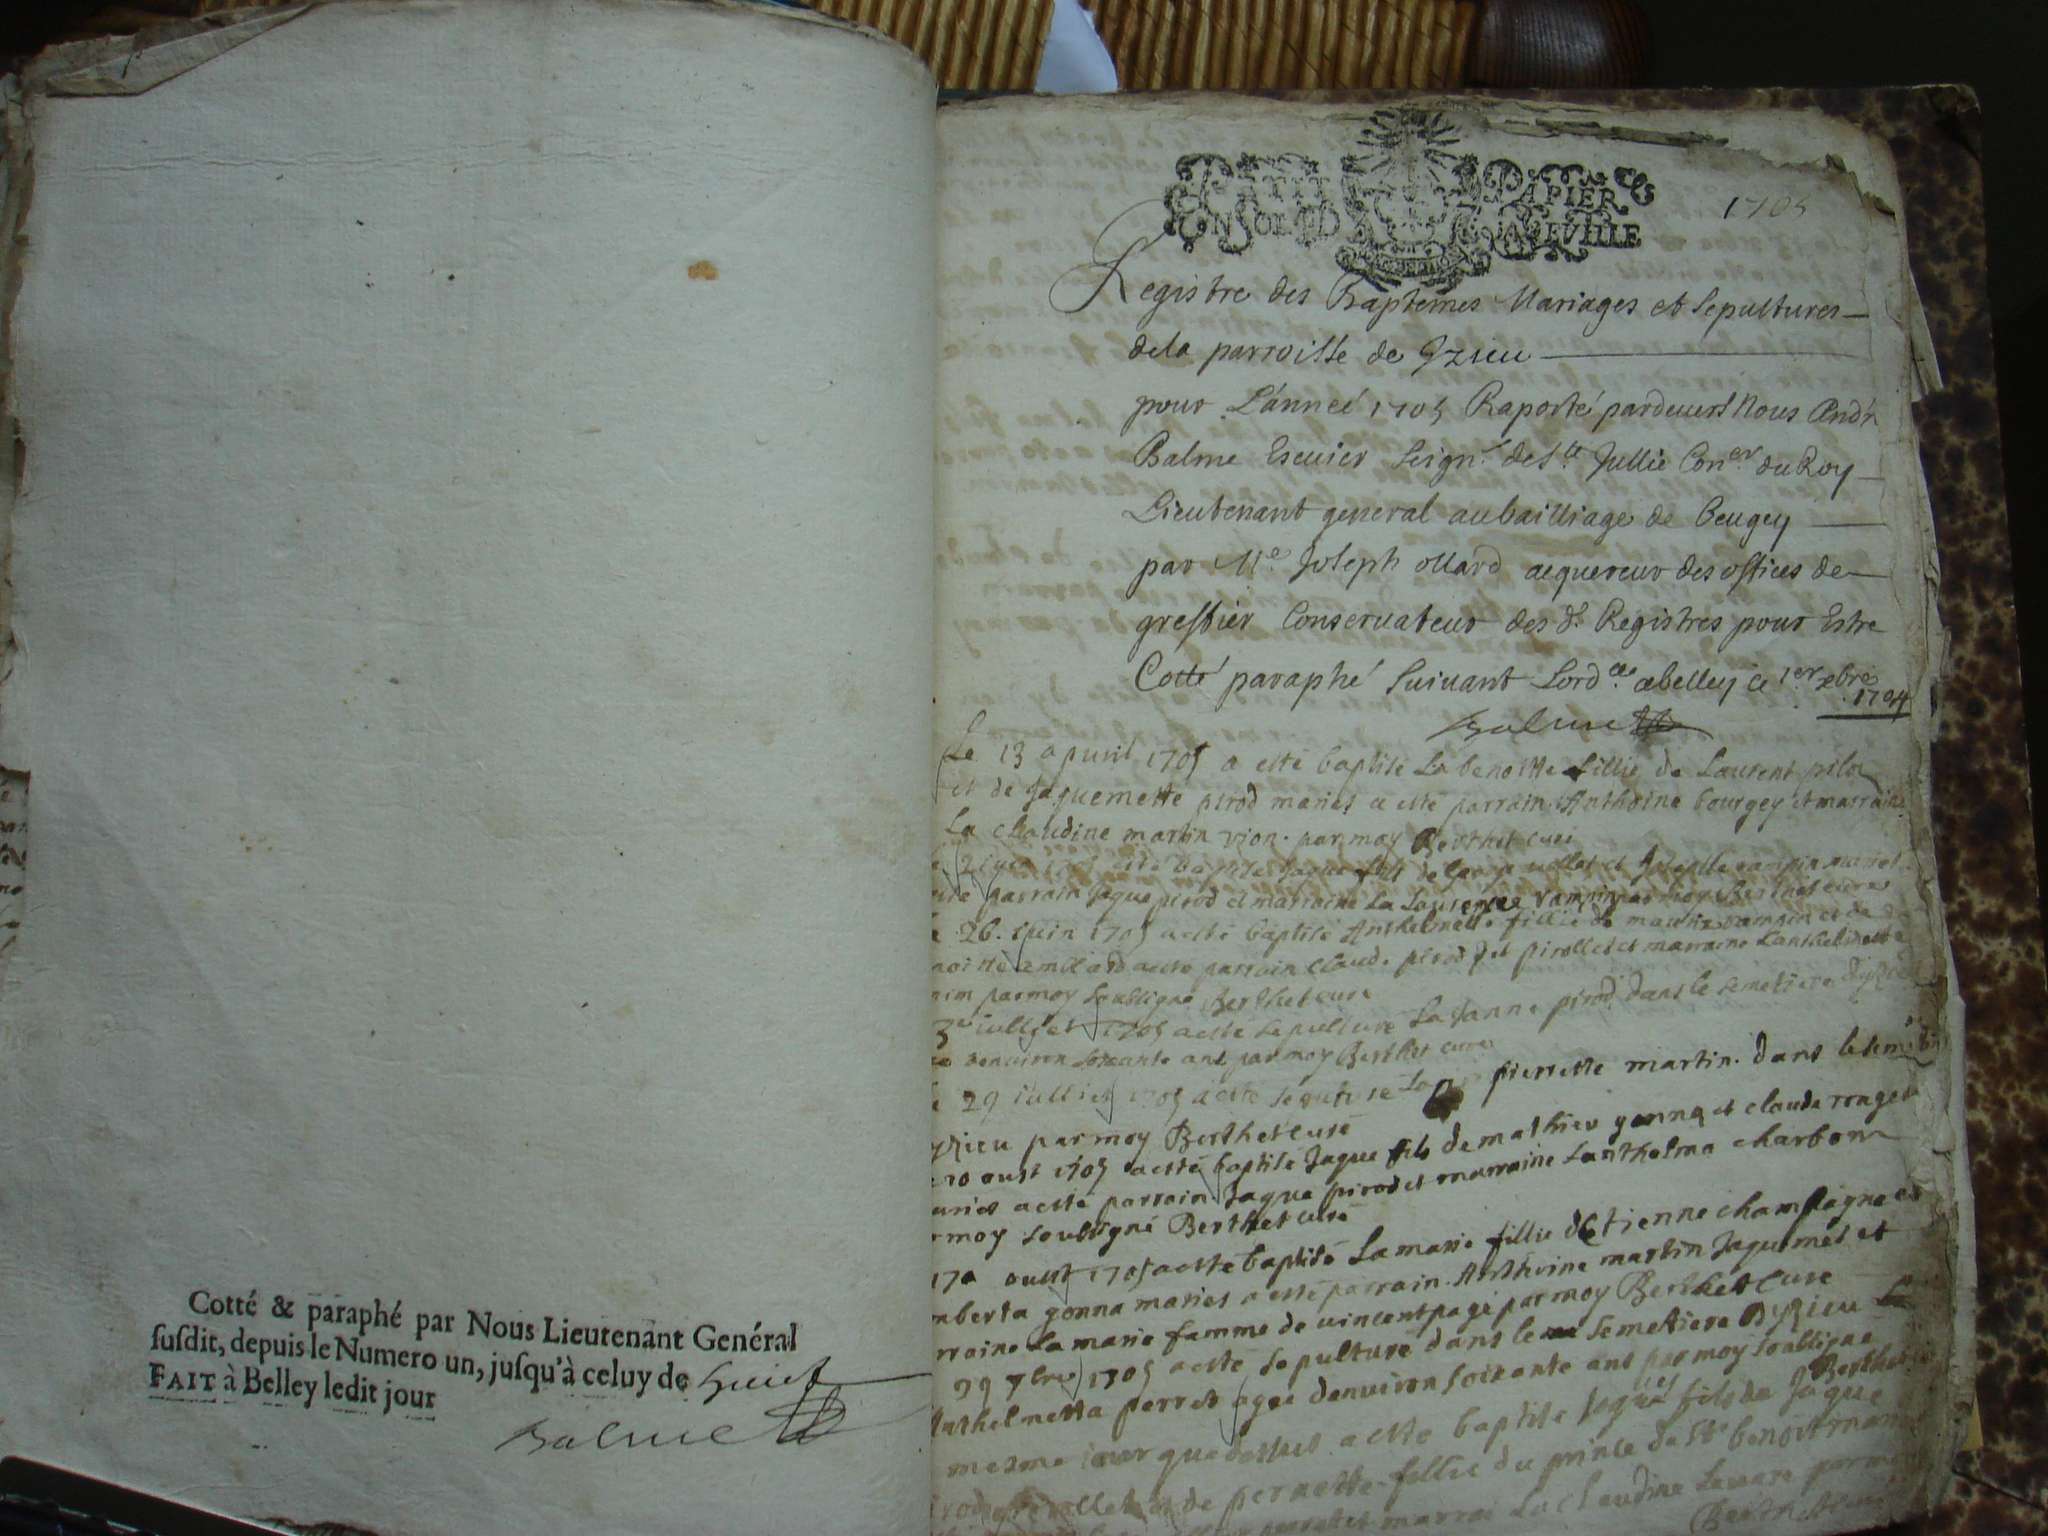 Cotté & paraphé par Nous Lieutenant Genéral
susdit, depuis le Numero un, jusqu'à celuy de huict
FAIT à Belley ledit jour
Balme
PETIT PAPIER
1705
Registre des Baptemes Mariages et Sepultures
dela parroisse de Yzieu
pour L'anneé 1705 Raporté pardevers Nous André
Balme Escuier Seignr de Ste Jullie Coner du Roy
Lieutenant general au bailliage de beugey
par Me Joseph ollard aquereur des offices de
greffier Conservateur des ds Registres pour Estre
Cotté paraphé suivant Lordce a belley ce 1er xbre
1704
Balme
Le 13 apvril 1705 a esté baptisé La benoitte fillie de Laurent
et de Jaquemette pirod mariés a esté parrain Anthoine bourgey et marraine
La claudine martin vion par moy Berthet curé
baptisé Jaque fils de
parrain Jaque pirod et marraine La Laurence vampin par moy Berthet curé
26 iuin 1705 a esté baptisé Anthelmette fillie de vampin et de
a esté parrain claude pirod dit pirollet et marraine Lanthelmette
par moy soubsigné Berthet curé
3e iulliet 1705 a esté sepulturé La Janne pirod dans le semetiere dyzieu
denviron soixante ans par moy Berthet curé
29 iulliet 1705 a esté pierrette martin dans le
yzieu par moy Berthet curé
10 oust 1705 a esté baptisé Jaque fils de mathieu gonna et clauda
mariés a esté parrain Jaque pirod et marraine Lanthelma charbon
moy soubsigné Berthet curé
17a oust 1705 a esté baptisé La marie fillie dEtienne champagne et
gonna mariés a esté parrain Anthoine martin Jaquemet et
La marie famme de vincent page par moy Berthet curé
29 7bre 1705 a esté sepulturé dans le semetiere Dyzieu
Anthelmetta perret agée denviron soixante ans par moy soubsigné
Berthet
mesme iour que dessus a esté baptisé fils de Jaque
et de pernette fillie du prince de St benoit
La claudine
Berthet curé